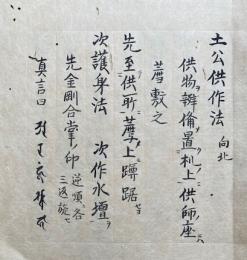 土公供作法 向北
供物辨備置机上供師座ニハ
薦敷之
先至供所薦上蹲踞
次護身法 次作水壇
先金剛合掌ノ印 逆順各三返旋
真言曰